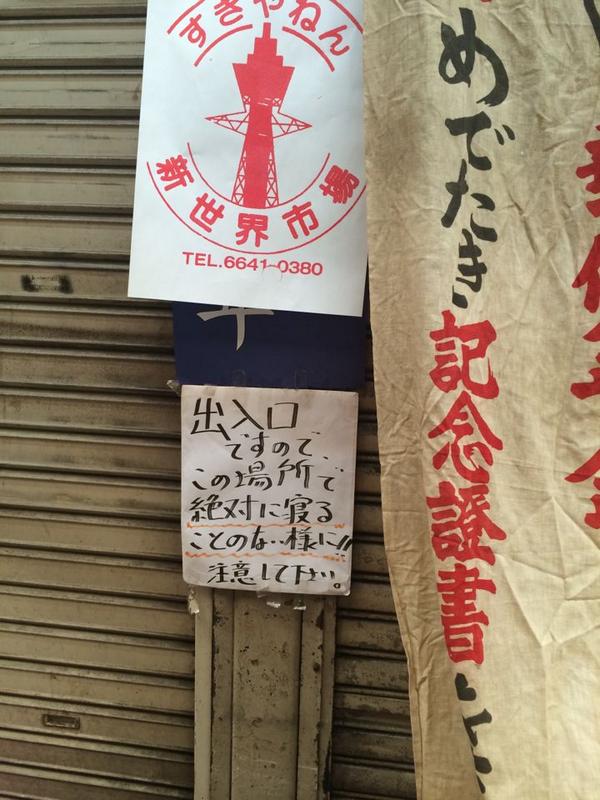 すきやねん
新世界市場
TEL.6641-0380
出入口
ですので、
この場所で
絶対に寝る
ことのない様に!!
注意して下さい。
めでたき記念證書